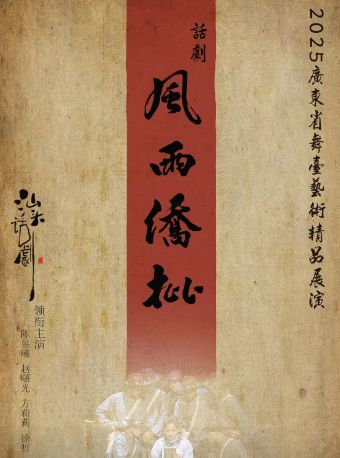 2025廣東省舞臺藝術精品展演
話劇
風雨僑批
汕头话劇
领衔主演
陈晨曦 赵曙光 方莉莉 徐哲